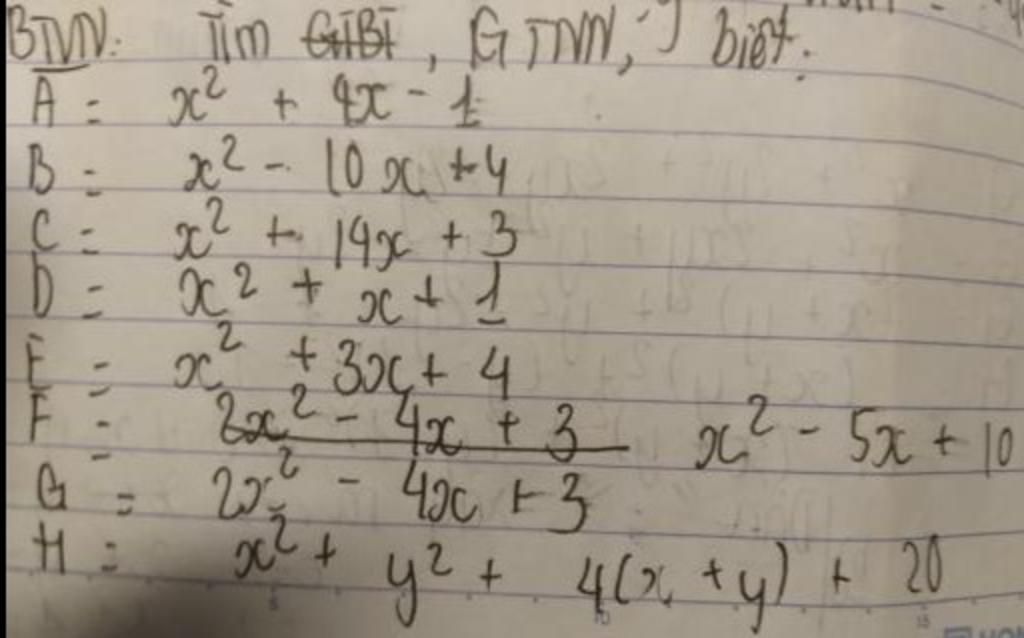 BTVN: Tìm GTBT, GTNN, biết:
A = x² + 4x - 1
B = x² - 10x + 4
C = x² + 14x + 3
D = x² + x + 1
E = x² + 3x + 4
F = 2x² - 4x + 3 x² - 5x + 10
G = 2x² - 4x + 3
H = x² + y² + 4(x + y) + 20